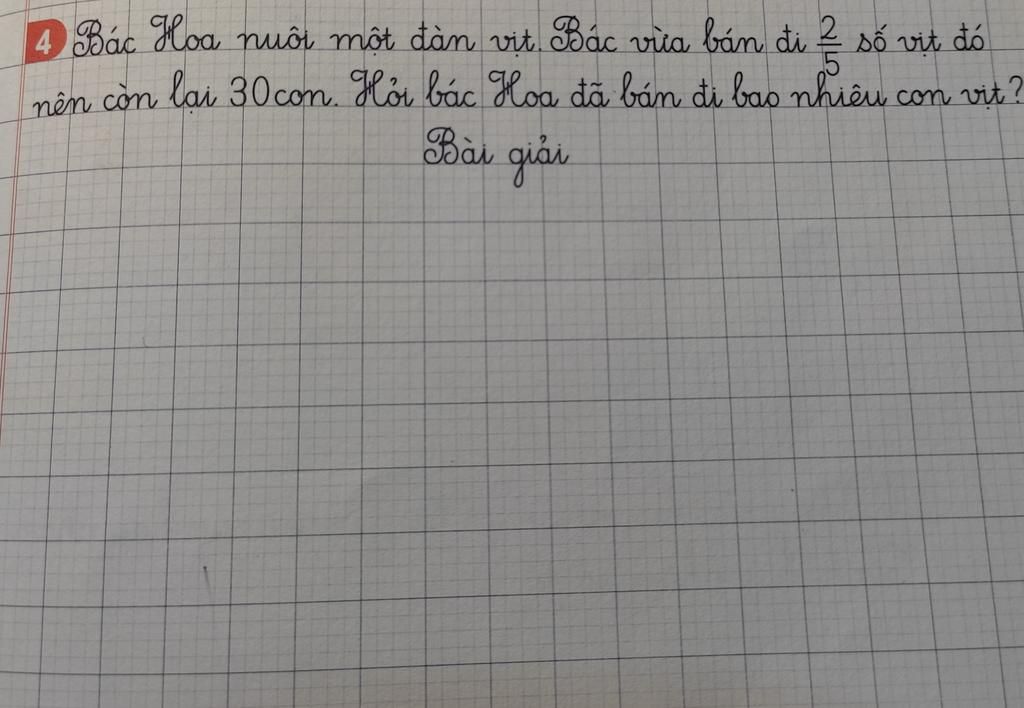 4 Bác Hoa nuôi một đàn vịt. Bác vừa bán đi 2/5 số vịt đó
nên còn lại 30 con. Hỏi bác Hoa đã bán đi bao nhiêu con vịt?
Bài giải